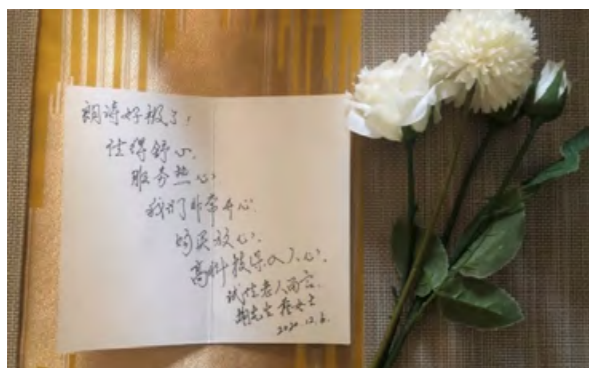 朗诗好极了!
住得舒心.
服务热心
我们非常开心.
购买放心.
高科技深入人心.
试住老人留言.
2020.12.6.